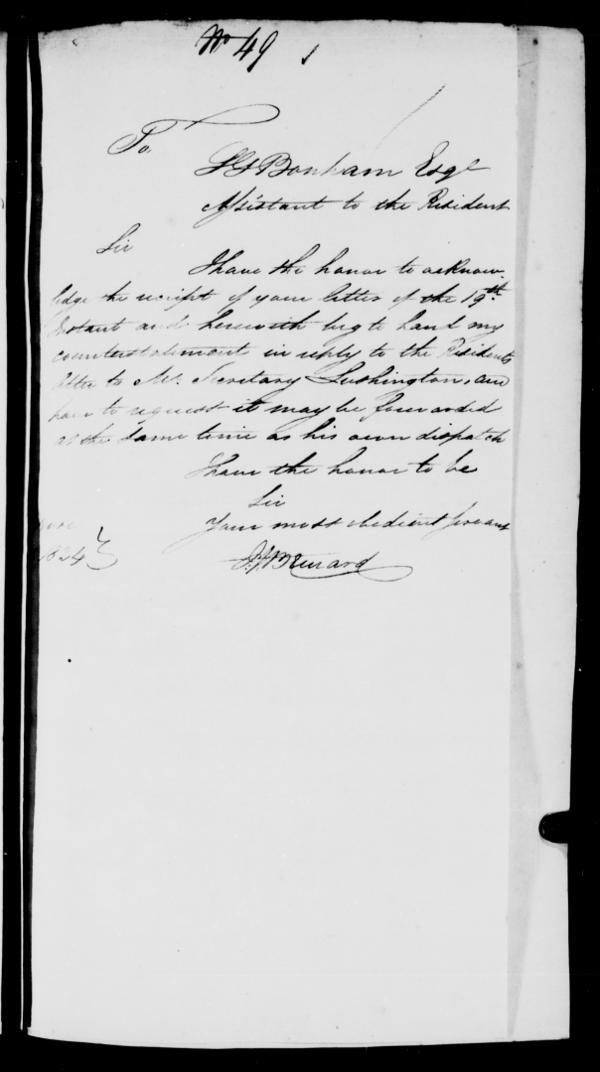 No 49
To,
S G Bonham Esqr
Assistant to the Resident
Sir
I have the honor to acknow-
ledge the receipt of your letter of the 19th
Instant and herewith beg to hand my
counterstatement in reply to the Residents
letter to Mr. Secretary Lushington, and
have to request it may be forwarded
at the same time as his own dispatch
I have the honor to be
Sir
Your most obedient Servant
1824